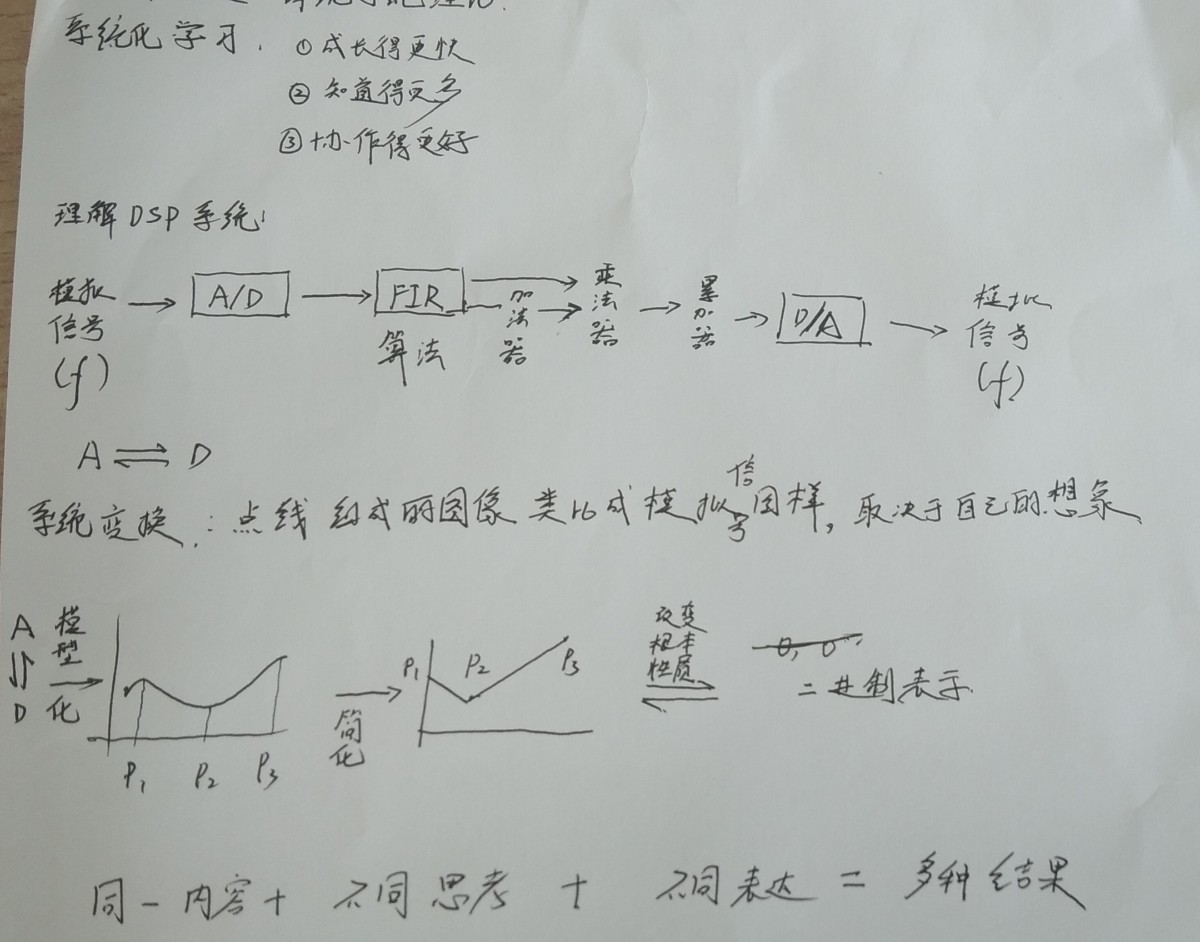 系统化学习. ① 成长得更快
② 知道得更多
③ 协作得更好
理解DSP系统:
模拟信号(f) → A/D → FIR算法 → 加法器 → 乘法器 → 累加器 → D/A → 模拟信号(f)
A ⇌ D
系统变换: 点线组成的图像类比成模拟信号图样, 取决于自己的想象
A ⇌ D 模型化 →
P1 P2 P3
→ 简化
P1 P2 P3
改变根本性质 ⇌
二进制表示
同一内容 + 不同思考 + 不同表达 = 多种结果